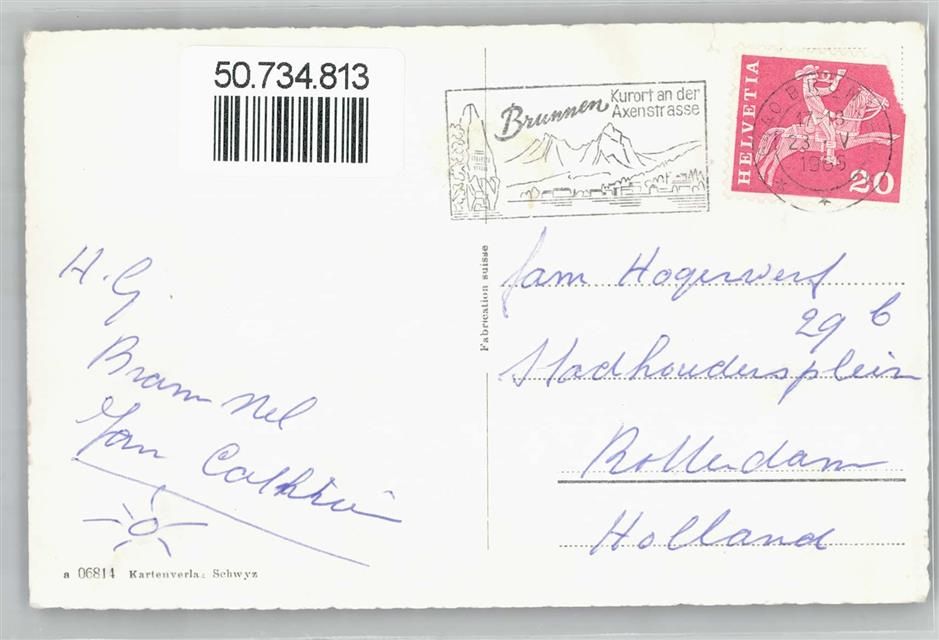 50.734.813
Brunnen
Kurort an der
Axenstrasse
HELVETIA
20
6440 BRUNNEN
23 V
1965
Fabrication suisse
H. G.
Bram Nel
Jan
fam Hogerwerf
29 b
Stadhoudersplein
Rotterdam
Holland
a 06814 Kartenverlag Schwyz